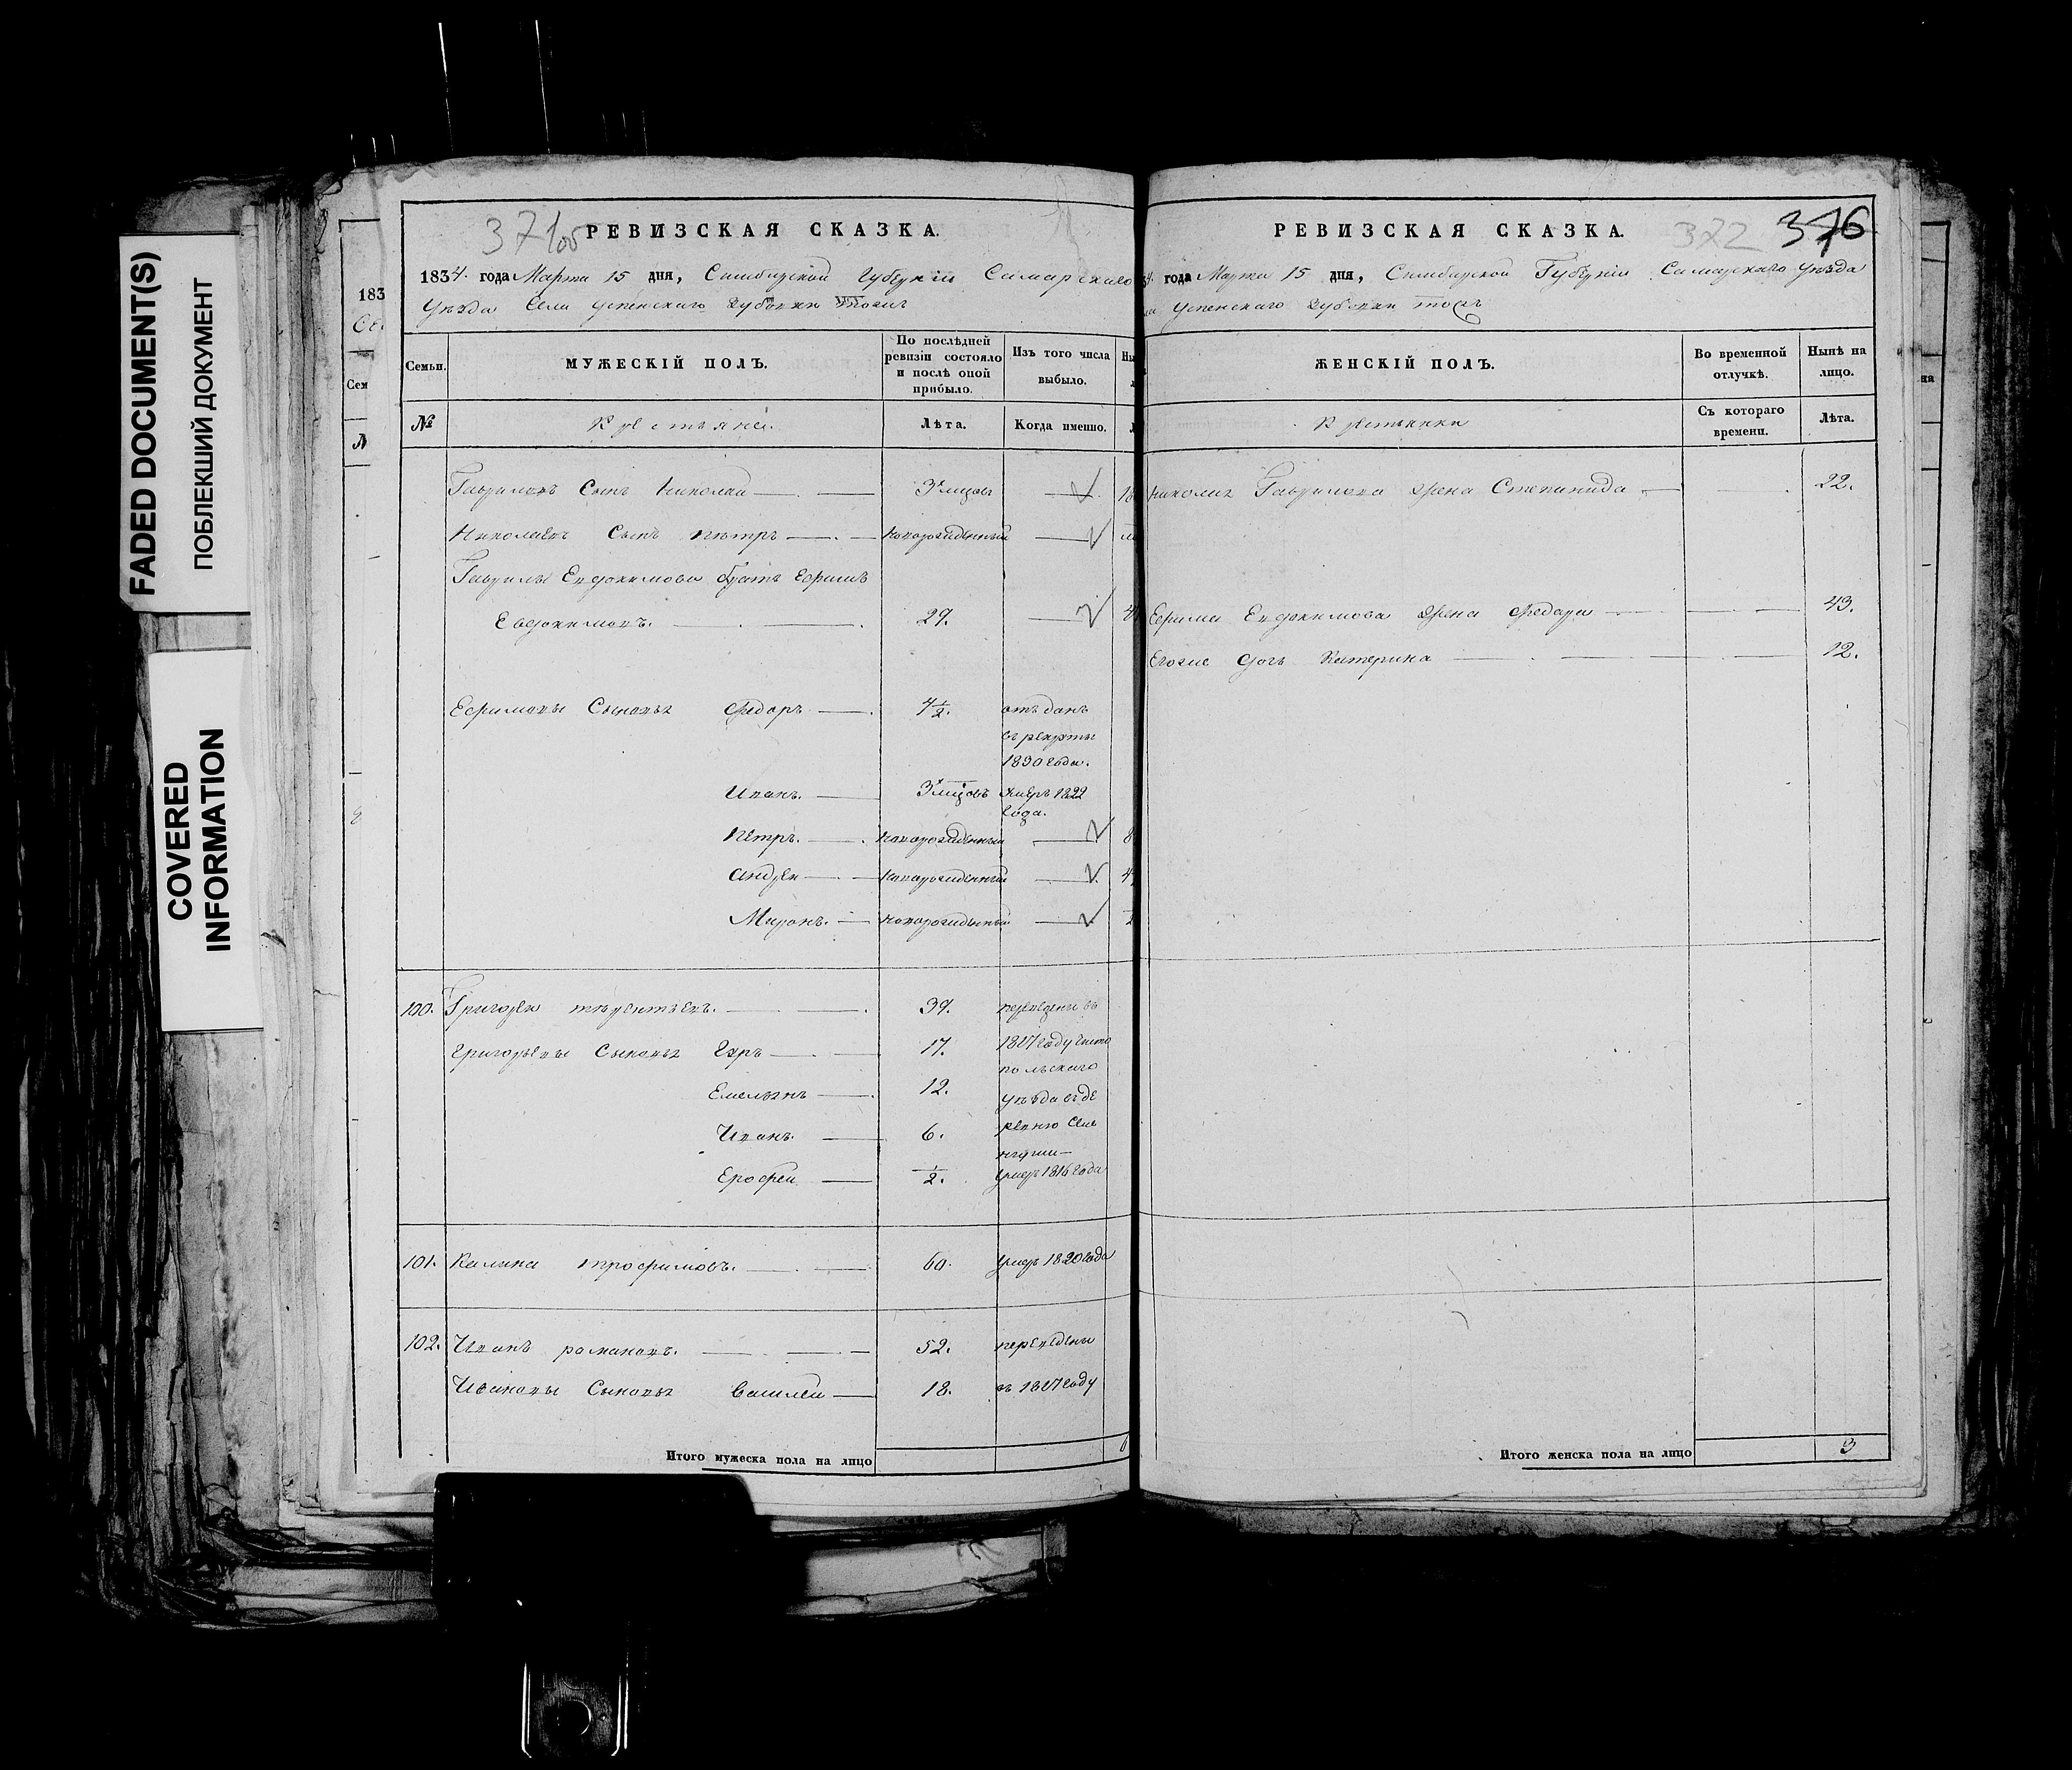 FADED DOCUMENT(S)
ПОБЛЕКШИЙ ДОКУМЕНТ
COVERED
INFORMATION
183
Сем
371об
РЕВИЗСКАЯ СКАЗКА.
1834. года Марта 15 дня, Симбирской Губернiи Самарскаго
Уѣзда Села Успенскаго Дубовки тожъ
Семьи.
МУЖЕСКIЙ ПОЛЪ.
По послѣдней ревизiи состояло и послѣ оной прибыло.
Изъ того числа выбыло.
№
Крестьяне.
Лѣта.
Когда именно.
Гавриловъ Сынъ Николай 3х мцовъ
Николаевъ Сынъ Петръ новорожденный
Гаврилы Евдокимова братъ Ефимъ
Евдокимовъ. 29.
Ефимовы Сыновья Федоръ. 7½. отъданъ
въ рекруты
1830 года.
Иванъ. 3х мцовъ умеръ 1822
года.
Петръ. новорожденный 8
Андрей новорожденный 4
Миронъ. новорожденный
100. Григорей 39. переведены въ
Григорьевы Сыновья Егоръ 17. 1817 году Чисто
польскаго
Емельянъ 12. уѣзда въ де
Иванъ. 6. ревню
Ерофеи ½. умеръ 1816 года
101. Калина трофимовъ. 60. умеръ 1820 года
102. Иванъ романовъ. 52. переведены
Ивановы Сыновья Василеи 18. въ 1817 году
Итого мужеска пола на лицо
РЕВИЗСКАЯ СКАЗКА.
372 376
года Марта 15 дня, Симбирской Губернiи Самарскаго Уѣзда
Успенскаго Дубовки тожъ
ЖЕНСКIЙ ПОЛЪ.
Во временной отлучкѣ.
Нынѣ на лицо.
Крестьянки
Съ котораго времени.
Лѣта.
Николая Гаврилова жена Степанида 22.
Ефима Евдокимова жена Федора 43.
Егоже дочь Катерина 12.
Итого женска пола на лицо 3